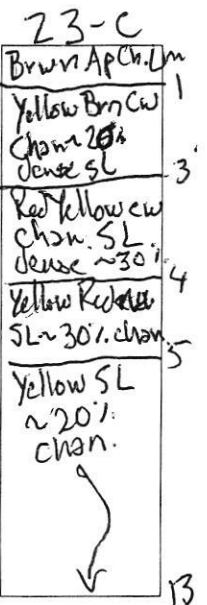 23-C
Brwn Ap Ch. Lm
1
Yellow Brn Cw
Chan ~ 20%
dense SL
3'
Red Yellow cw
chan. SL.
dense ~30%
4
Yellow Red
SL ~ 30% chan.
5
Yellow SL
~20%
chan.
13